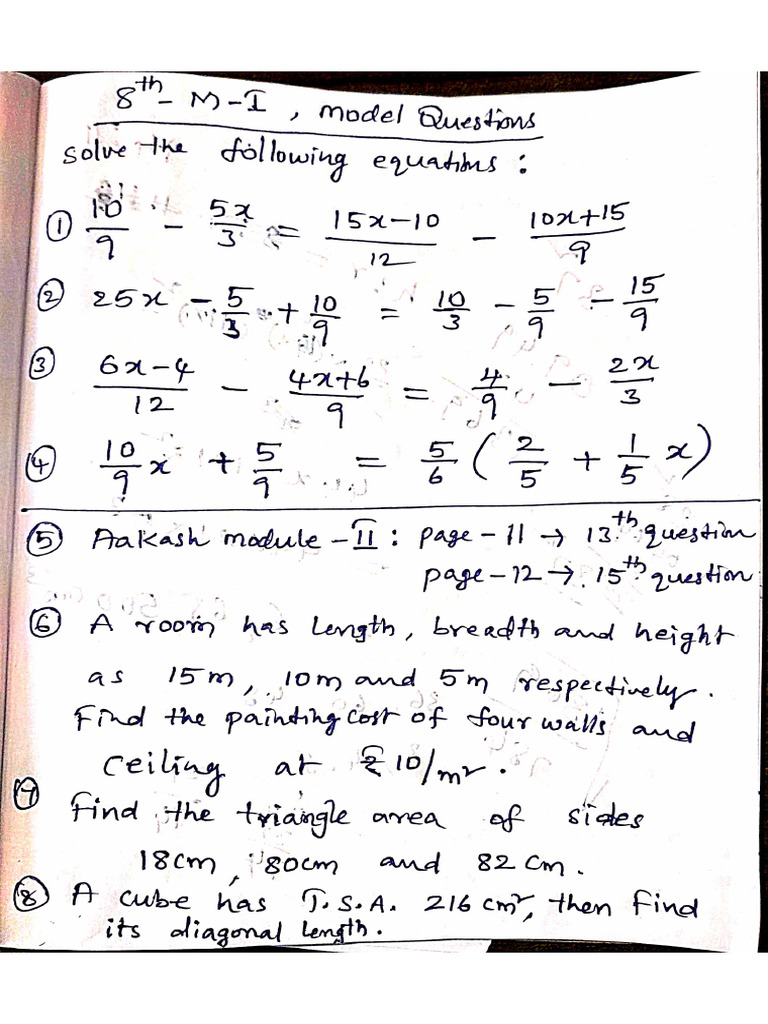 8th - M - I, Model Questions
Solve the following equations:
① 10/9 - 5x/3 = 15x-10/12 - 10x+15/9
② 25x - 5/3 + 10/9 = 10/3 - 5/9 - 15/9
③ 6x-4/12 - 4x+6/9 = 4/9 - 2x/3
④ 10/9 x + 5/9 = 5/6 ( 2/5 + 1/5 x )
⑤ Aakash module - II : page - 11 → 13th question
page - 12 → 15th question
⑥ A room has length, breadth and height
as 15m, 10m and 5m respectively.
Find the painting cost of four walls and
ceiling at ₹10/m².
⑦ Find the triangle area of sides
18cm, 80cm and 82cm.
⑧ A cube has T.S.A. 216 cm², then find
its diagonal length.